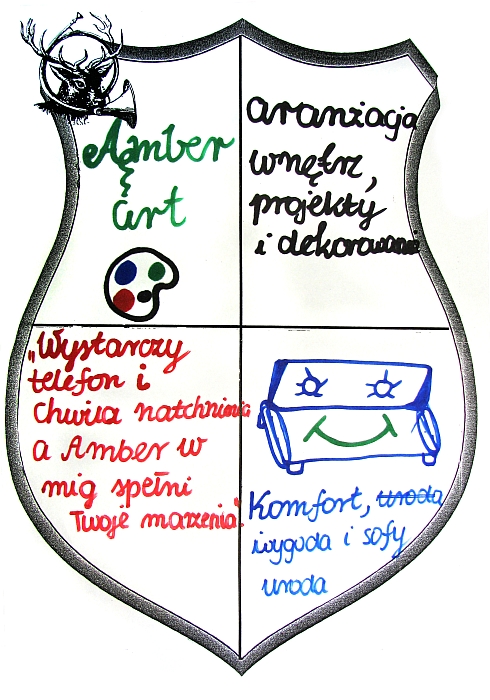 Amber
&
art
aranżacja
wnętrz,
projekty
i dekorowanie
„Wystarczy
telefon i
Chwila natchnienia
a Amber w
mig spełni
Twoje marzenia".
Komfort, uroda
wygoda i sofy
uroda